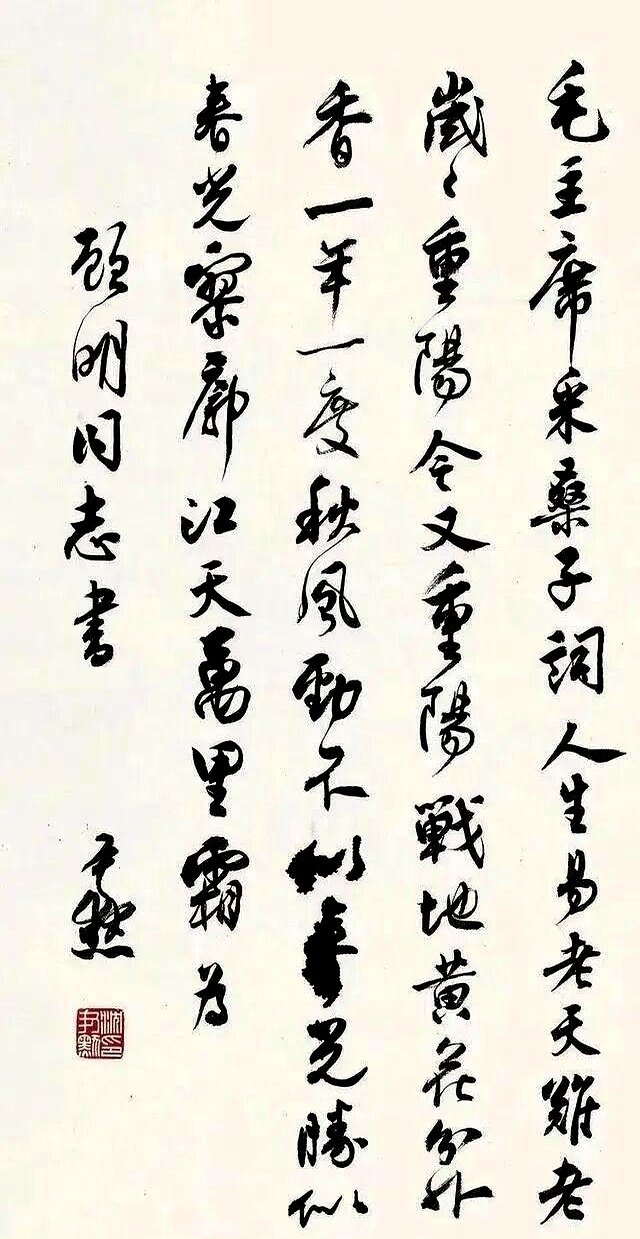 毛主席采桑子詞人生易老天難老
歲〻重陽今又重陽戰地黃花分外
香一年一度秋風勁不似春光勝似
春光寥廓江天萬里霜為
顧明同志書
尹默
沈尹默印